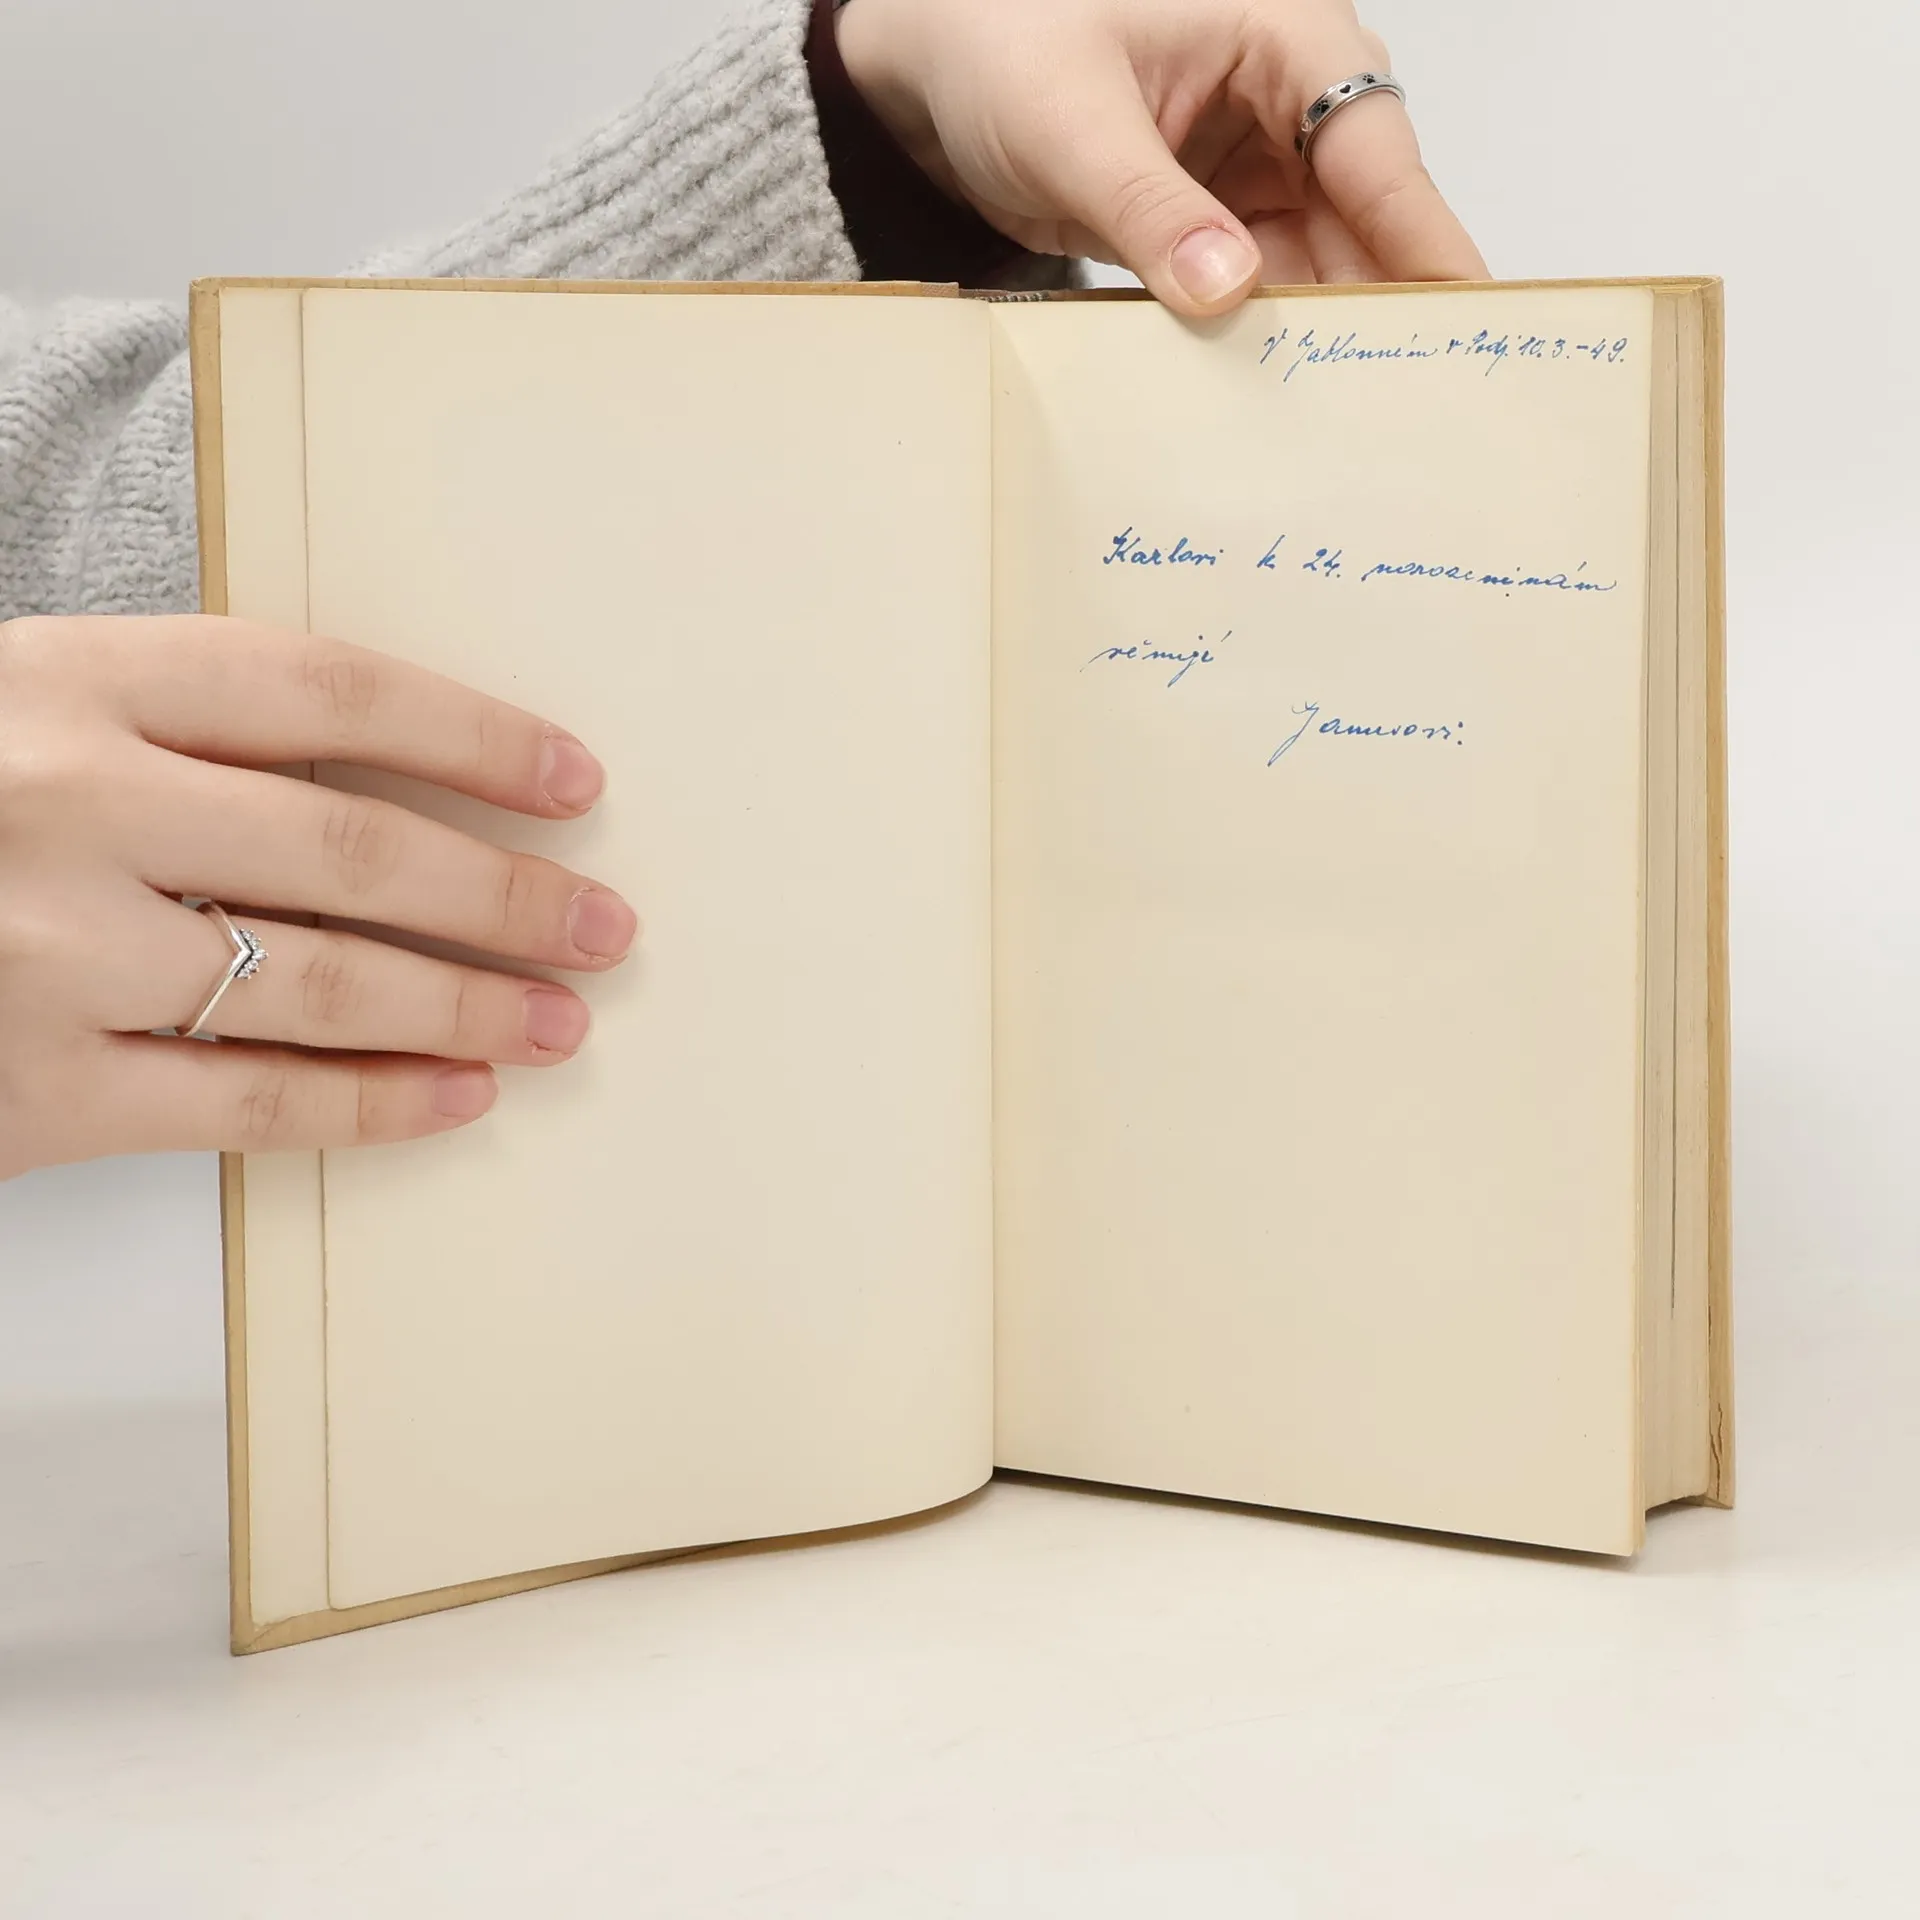 V Jablonném v Podj. 10.3.-49.
Karlovi k 24. narozeninám
věnují
Janusovi.